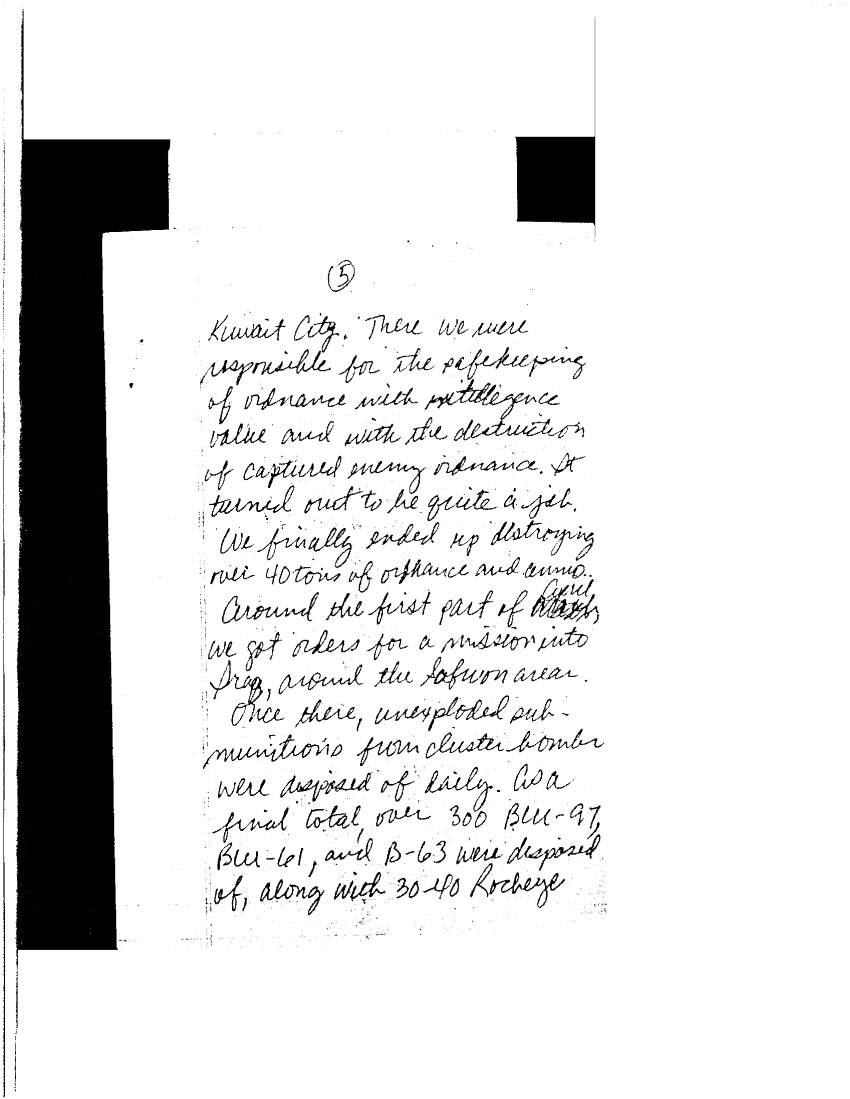 5
Kuwait City. There we were
responsible for the safekeeping
of ordnance with intellegence
value and with the destruction
of captured enemy ordnance. It
turned out to be quite a job.
We finally ended up destroying
over 40 tons of ordnance and ammo.
April
Around the first part of
we got orders for a mission into
Iraq, around the Safwon area.
Once there, unexploded sub-
munitions from cluster bombs
were disposed of daily. As a
final total, over 300 BLU-97,
BLU-61, and B-63 were disposed
of, along with 30-40 Rockeye